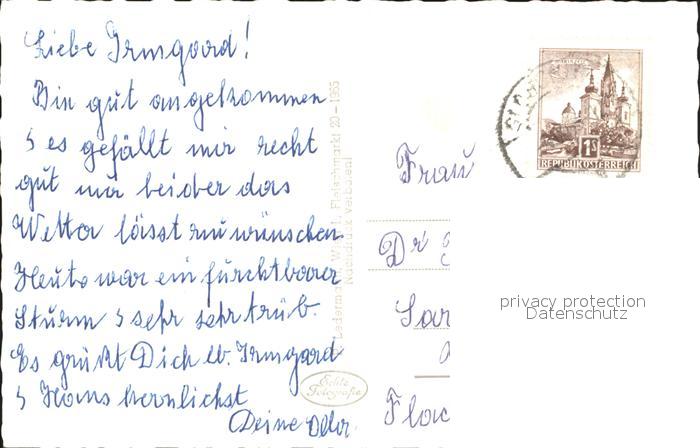 Liebe Irmgard!
Bin gut angekommen
& es gefällt mir recht
gut nur leider das
Wetter lässt zu wünschen
Heute war ein furchtbarer
Sturm & sehr sehr trüb.
Es grüßt Dich lb. Irmgard
& Hans herzlichst
Deine
Echte
Fotografie
Wien I, Fleischmarkt 20 - 1365
Nachdruck verboten!
1S
REPUBLIK ÖSTERREICH
Frau
Dr
privacy protection
Datenschutz